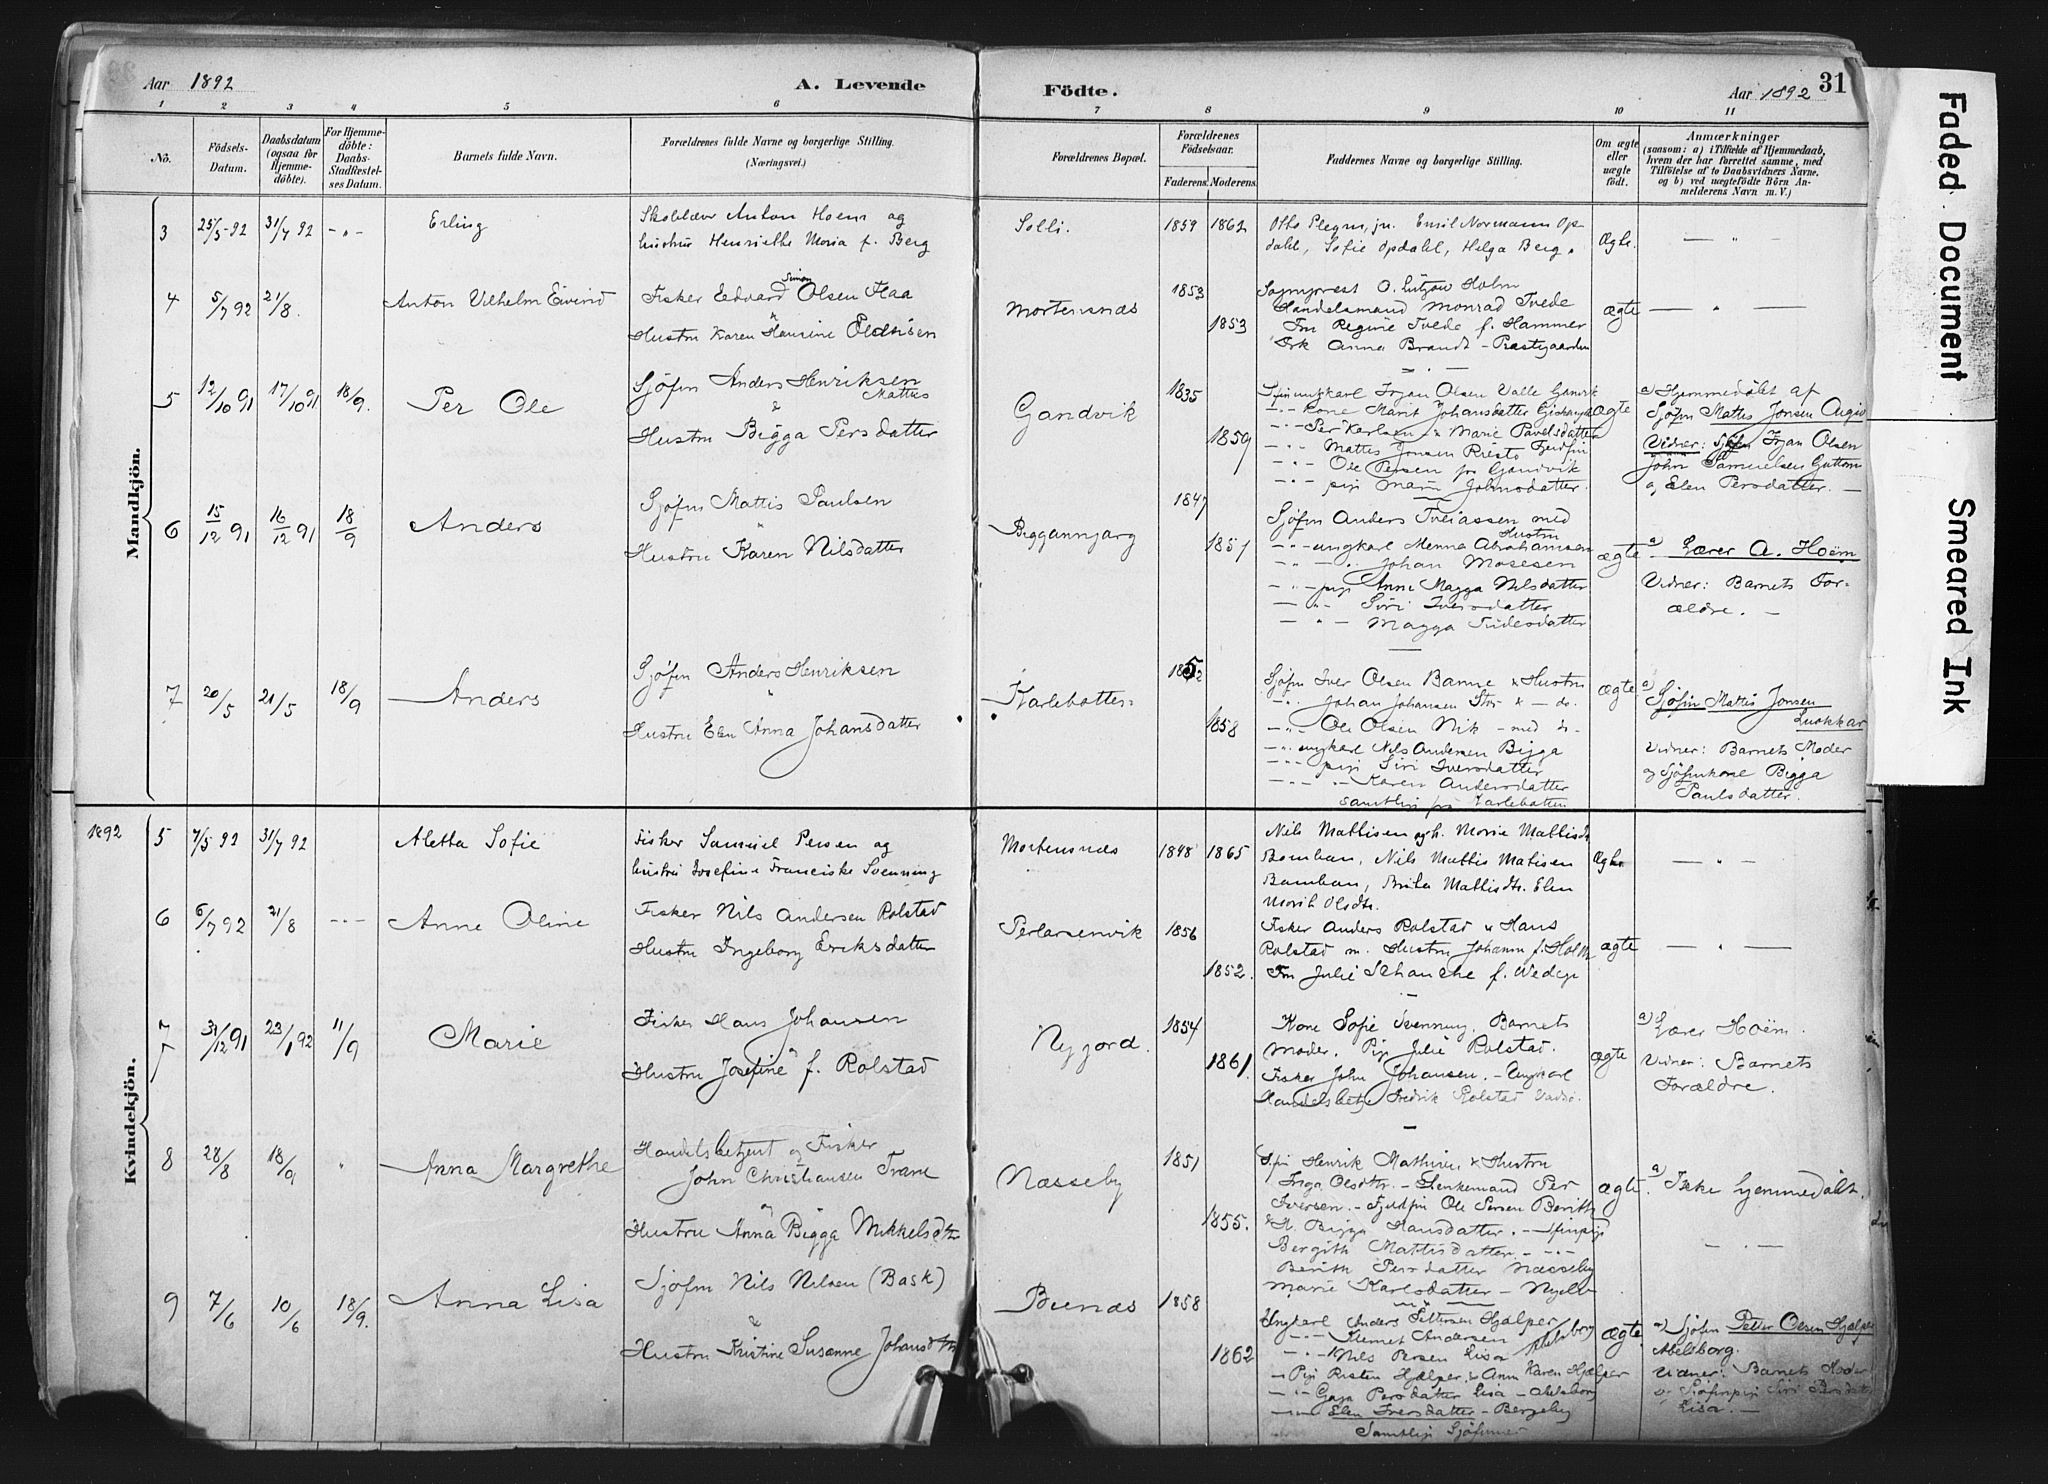 Aar 1892
A. Levende
Födte.
Aar 1892
31
1 2 3 4 5 6 7 8 9 10 11
No.
Födsels-Datum.
Daabsdatum (ogsaa for Hjemme-döbte).
For Hjemme-döbte: Daabs-Stadfæstel-ses Datum.
Barnets fulde Navn.
Forældrenes fulde Navne og borgerlige Stilling.
(Næringsvei.)
Forældrenes Bopæl.
Forældrenes Födselsaar.
Faderens. Moderens.
Faddernes Navne og borgerlige Stilling.
Om ægte eller uægte födt.
Anmærkninger
(saasom: a) i Tilfælde af Hjemmedaab, hvem der har forrettet samme, med Tilföielse af to Daabsvidners Navne, og b) ved uægtefödte Börn An-melderens Navn m. V.)
Mandkjön.
3 25/5-92 31/7 92 -„- Erling
Anton Hoem og
hustru Henriethe Maria f. Berg
Solli. 1859 1862
Emil Normann Op
dahl, Sofie Opdahl, Helga Berg.
Ægte. — „ —
4 5/7 92 21/8. Anton Vilhelm Eivind
Fisker Edvard Simon Olsen Flaa
Hustru Karen Hansine
Mortensnæs 1853
1853
Sogneprest O. Lützow Holm
Handelsmand Monrad Tvede
Fru Regine Tvede f. Hammer
Frk Anna Brandt - Præstegaarden
ægte — „ —
5 12/10 91 17/10 91 18/9. Per Ole
Sjöfin Anders Henriksen
Mattus
&
Hustru Bigga Persdatter
Gandvik 1835
1859
Olsen Valle
Kone Marit Johansdatter
Per Karlsen & Marie Pavelsdatter
Mattis Jonsen Risto Fjeldfin
Ole Persen fra Gandvik
pige Marie Johnsdatter.
ægte
a) Hjemmedöbt af
Sjöfin Mattis Jonsen
Vidner: Sjöfin Olsen
John Samuelsen
og Elen Persdatter. —
6 15/12 91 16/12 91 18/9 Anders
Sjöfin Mattis Paulsen
&
Hustru Karen Nilsdatter
Biggannjarg 1847
1851
Sjöfin Anders med
Hustru
-„- ungkarl Menna Abrahamsen
-„- Johan Mosesen
-„- pige Anne Magga Nilsdatter
-„- Siri Iversdatter
-„- Magga
ægte
a) Lærer A. Hoëm
Vidner: Barnets For-
ældre. —
7 20/5 21/5 18/9 Anders
Sjöfin Anders Henriksen
&
Hustru Elen Anna Johansdatter
Karlebotten 1852
1858
Sjöfin Iver Olsen Banne & Hustru
-„- Johan Johansen Stor & - do.
-„- Ole Olsen Nik - med
-„- ungkarl Nils Andersen Bigga
-„- pige Siri Iversdatter
-„- Karen Andersdatter
samtlige fra Karlebotten
ægte
a) Sjöfin Mattis Jonsen
Luokkar
Vidner: Barnets Moder
og Sjöfinkone Bigga
Paulsdatter.
1892
Kvindekjön.
5 7/5 92 31/7 92 Aletta Sofie
Fisker Samuel Persen og
hustru Josefine Franciske Svenning
Mortensnæs 1848 1865
Nils Mattisen og h. Marie Mattisdt.
Bomban, Nils Mattis Matisen
Bomban, Brita Mattisdtr. Elen
Marit Olsdtr.
Ægte — „ —
6 6/7 92 21/8 -„- Anne Oline
Fisker Nils Andersen Rolstad
Hustru Ingeborg Eriksdatter
Perlarsenvik 1856
1852.
Fisker Anders Rolstad & Hans
Rolstad m. Hustru Johanne f. Holm
Fru Julie Schanche f. Wedege
ægte — „ —
7 31/12 91 23/1 92 11/9 Marie
Fisker Hans Johansen
&
Hustru Josefine f. Rolstad
Nygjord. 1854
1861.
Kone Sofie Svenning, Barnets
Moder. Pige Julie Rolstad.
Fisker John Johansen. - Ungkarl
Handelsbetj. Fredrik Rolstad Vadsö.
ægte
a) Lærer Hoëm.
Vidner: Barnets
Forældre.
8 28/8 18/9 „ Anna Margrethe
Handelsbetjent og Fisker
John Christiansen Trane
&
Hustru Anna Bigga Mikkelsdtr
Næsseby 1851
1855.
Henrik Mathisen & Hustru
Inga Olsdtr. - Lænsmand Per
Iversen. - Fjeldfin Ole Persen Berith
& H. Bigga Hansdatter. -
Bergith Mattisdatter. -
Berith Persdatter Næsseby
Marie Karlsdatter - Nyelv
ægte.
a) Ikke hjemmedöbt.
— „ —
9 7/6 10/6 18/9. Anna Lisa
Sjöfin Nils Nilsen (Bask)
&
Hustru Kristine Susanne Johansdtr
Bunæs 1858
1862
Ungkarl Anders Pettersen Hjelper
-„- Klemet Andersen
-„- Nils Persen Lisa Abelsborg
- Pige Risten Hjelper. & Anne Karen Hjelper
-„- Gaja Persdatter Lisa - Abelsborg
Elen Iversdatter - Bergeby
Samtlige Sjöfinner
ægte
a) Sjöfin Petter Olsen Hjelper
Abelsborg.
Vidner: Barnets Moder
& Sjöfinpige Siri Persdatter
Lisa. —
Faded Document
Smeared Ink